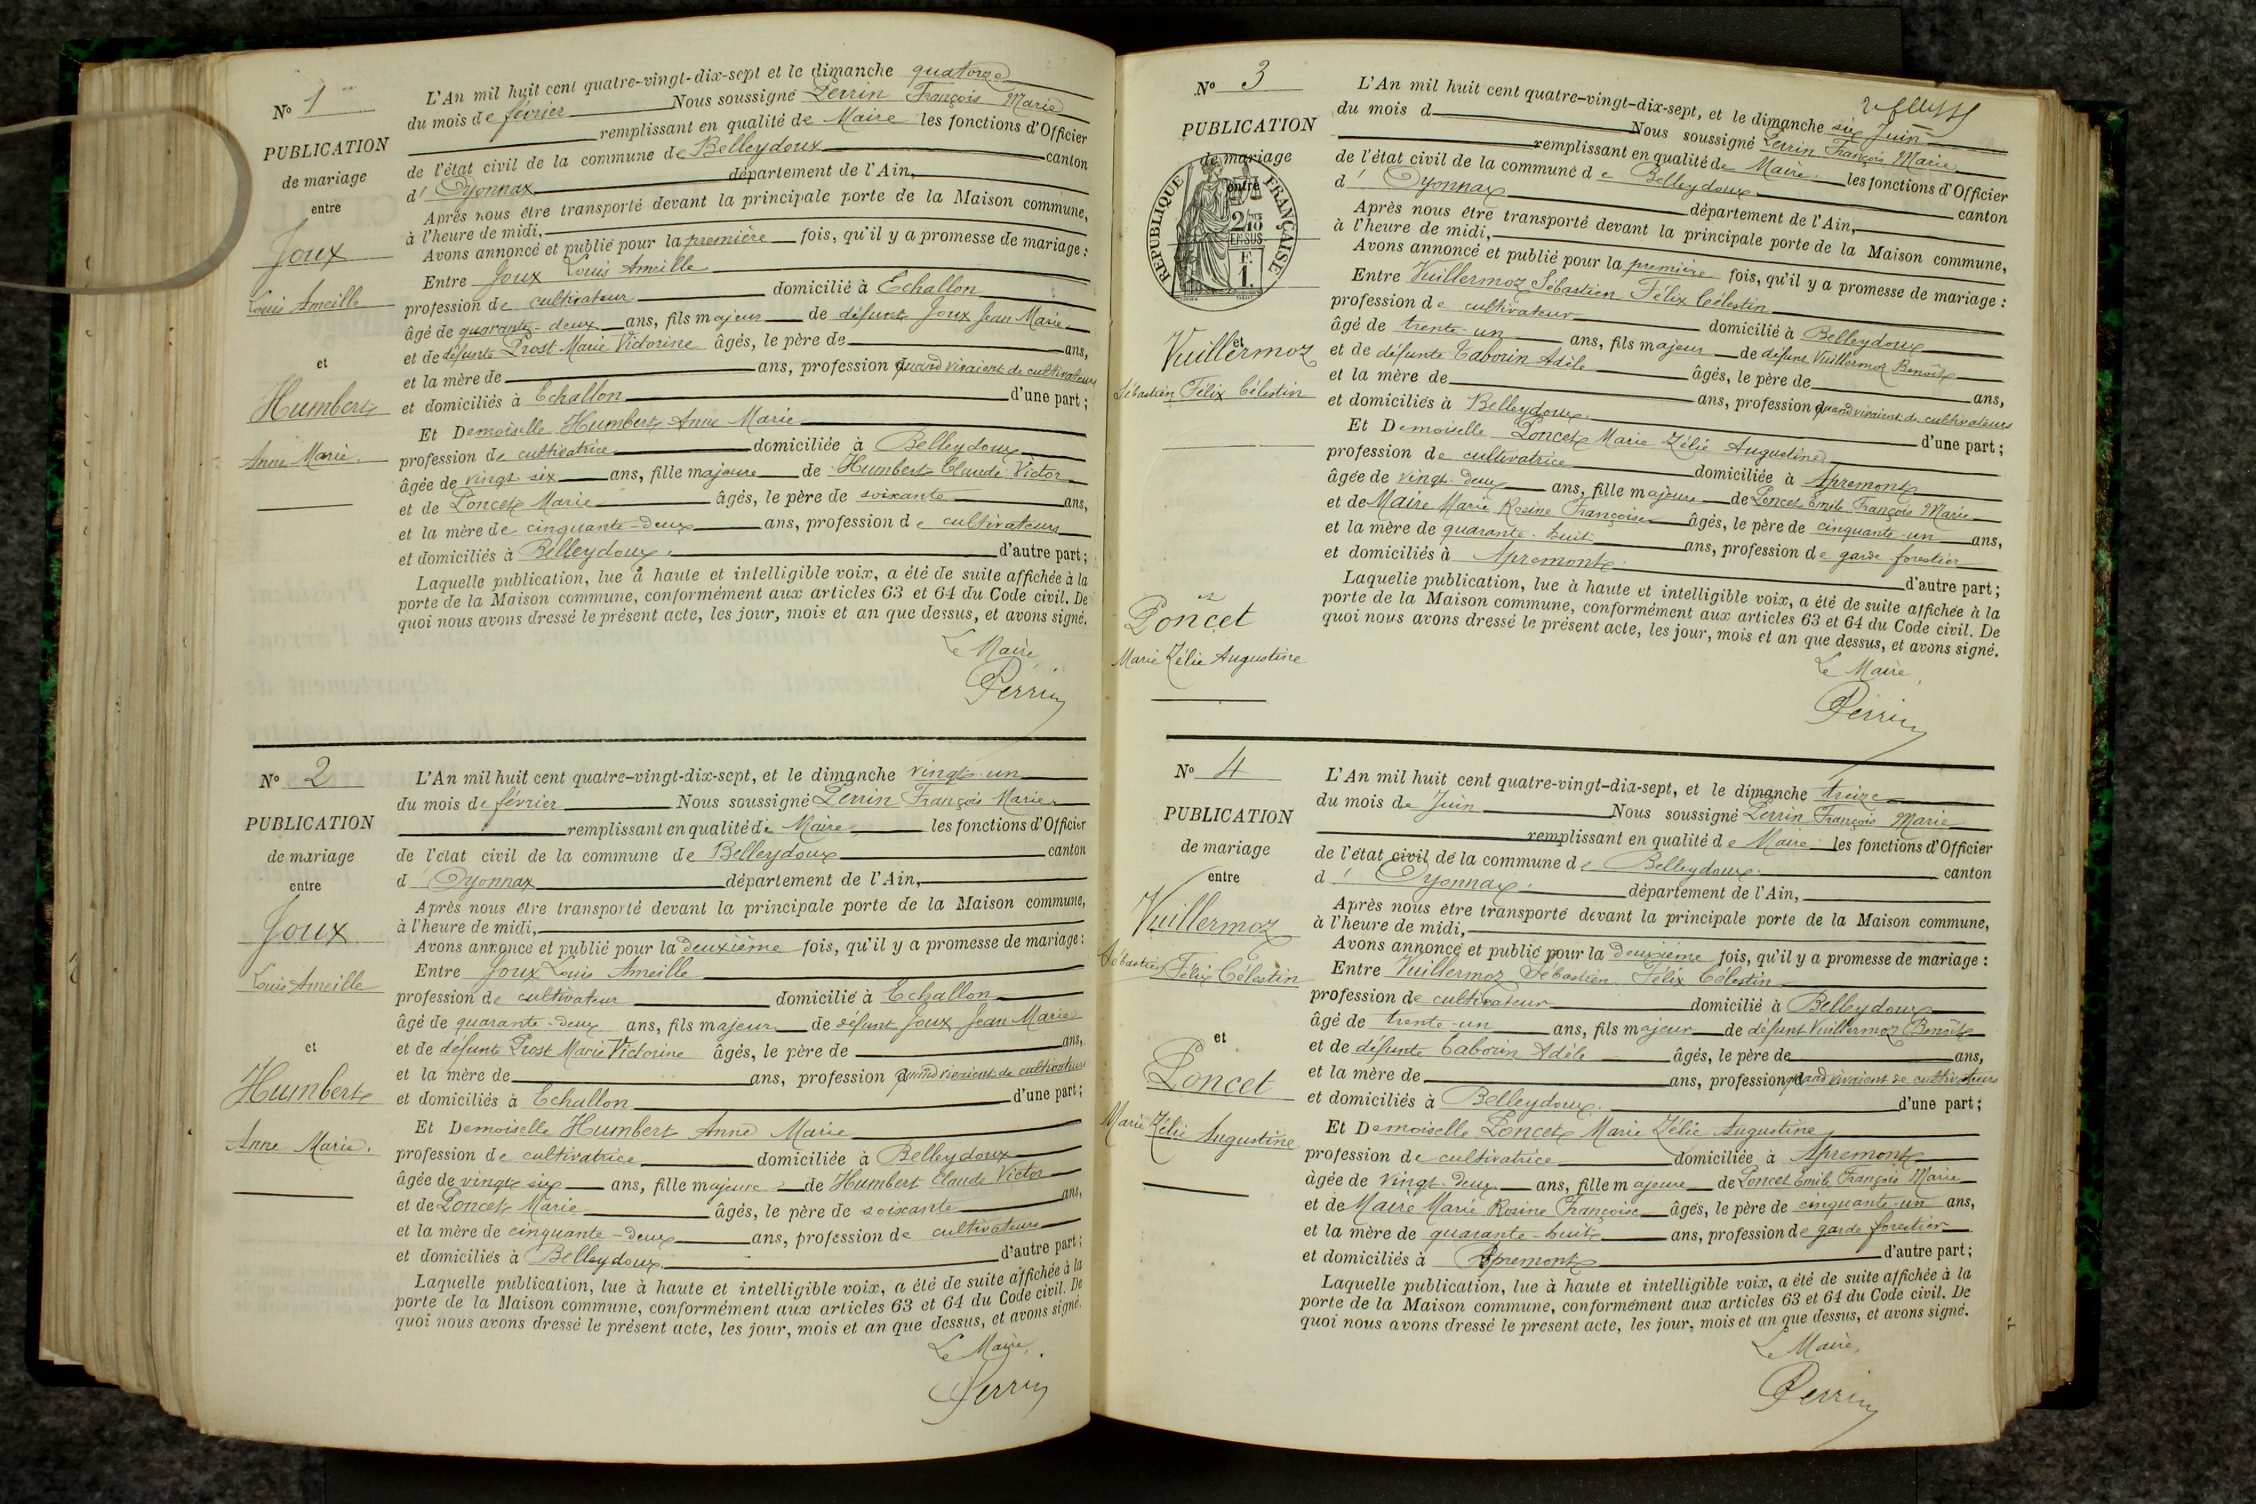 Nº 1
PUBLICATION
de mariage
entre
Joux
Louis Ameille
et
Humbert
Anne Marie.
L'An mil huit cent quatre-vingt-dix-sept et le dimanche quatorze
du mois de février Nous soussigné Perrin François Marie
remplissant en qualité de Maire les fonctions d'Officier
de l'état civil de la commune de Belleydoux canton
d' Oyonnax département de l'Ain,
Après nous être transporté devant la principale porte de la Maison commune,
à l'heure de midi,
Avons annoncé et publié pour la première fois, qu'il y a promesse de mariage :
Entre Joux Louis Ameille
profession de cultivateur domicilié à Echallon
âgé de quarante-deux ans, fils majeur de défunt Joux Jean Marie
et de défunte Prost Marie Victorine âgés, le père de ans,
et la mère de ans, profession quand vivaient de cultivateurs
et domiciliés à Echallon d'une part ;
Et Demoiselle Humbert Anne Marie
profession de cultivatrice domiciliée à Belleydoux
âgée de vingt six ans, fille majeure de Humbert Claude Victor
et de Poncet Marie âgés, le père de soixante ans,
et la mère de cinquante-deux ans, profession de cultivateurs
et domiciliés à Belleydoux. d'autre part ;
Laquelle publication, lue à haute et intelligible voix, a été de suite affichée à la
porte de la Maison commune, conformément aux articles 63 et 64 du Code civil. De
quoi nous avons dressé le présent acte, les jour, mois et an que dessus, et avons signé.
Le Maire
Perrin
Nº 2
PUBLICATION
de mariage
entre
Joux
Louis Ameille
et
Humbert
Anne Marie.
L'An mil huit cent quatre-vingt-dix-sept, et le dimanche vingt-un
du mois de février Nous soussigné Perrin François Marie
remplissant en qualité de Maire les fonctions d'Officier
de l'état civil de la commune de Belleydoux canton
d Oyonnax département de l'Ain,
Après nous être transporté devant la principale porte de la Maison commune,
à l'heure de midi,
Avons annoncé et publié pour la deuxième fois, qu'il y a promesse de mariage :
Entre Joux Louis Ameille
profession de cultivateur domicilié à Echallon
âgé de quarante-deux ans, fils majeur de défunt Joux Jean Marie
et de défunte Prost Marie Victorine âgés, le père de ans,
et la mère de ans, profession quand vivaient de cultivateurs
et domiciliés à Echallon d'une part ;
Et Demoiselle Humbert Anne Marie
profession de cultivatrice domiciliée à Belleydoux
âgée de vingt six ans, fille majeure de Humbert Claude Victor
et de Poncet Marie âgés, le père de soixante ans,
et la mère de cinquante-deux ans, profession de cultivateurs
et domiciliés à Belleydoux. d'autre part ;
Laquelle publication, lue à haute et intelligible voix, a été de suite affichée à la
porte de la Maison commune, conformément aux articles 63 et 64 du Code civil. De
quoi nous avons dressé le présent acte, les jour, mois et an que dessus, et avons signé.
Le Maire,
Perrin
Nº 3
PUBLICATION
de mariage
entre
RÉPUBLIQUE FRANÇAISE
2/10
EN SUS
F.
1.
et
Vuillermoz
Sébastien Félix Célestin
et
Poncet
Marie Zélie Augustine
L'An mil huit cent quatre-vingt-dix-sept, et le dimanche six Juin
du mois d Nous soussigné Perrin François Marie
remplissant en qualité de Maire. les fonctions d'Officier
de l'état civil de la commune de Belleydoux canton
d' Oyonnax département de l'Ain,
Après nous être transporté devant la principale porte de la Maison commune,
à l'heure de midi,
Avons annoncé et publié pour la première fois, qu'il y a promesse de mariage :
Entre Vuillermoz Sébastien Félix Célestin
profession de cultivateur domicilié à Belleydoux
âgé de trente-un ans, fils majeur de défunt Vuillermoz Benoît
et de défunte Tabourin Adèle âgés, le père de ans,
et la mère de ans, profession quand vivaient de cultivateurs
et domiciliés à Belleydoux. d'une part ;
Et Demoiselle Poncet Marie Zélie Augustine
profession de cultivatrice domiciliée à Apremont
âgée de vingt-deux ans, fille majeure de Poncet Emile François Marie
et de Maire Marie Rosine Françoise âgés, le père de cinquante-un ans,
et la mère de quarante-huit ans, profession de garde forestier
et domiciliés à Apremont. d'autre part ;
Laquelle publication, lue à haute et intelligible voix, a été de suite affichée à la
porte de la Maison commune, conformément aux articles 63 et 64 du Code civil. De
quoi nous avons dressé le présent acte, les jour, mois et an que dessus, et avons signé.
Le Maire,
Perrin
Nº 4
PUBLICATION
de mariage
entre
Vuillermoz
Sébastien Félix Célestin
et
Poncet
Marie Zélie Augustine
L'An mil huit cent quatre-vingt-dix-sept, et le dimanche treize
du mois de Juin Nous soussigné Perrin François Marie
remplissant en qualité de Maire. les fonctions d'Officier
de l'état civil de la commune de Belleydoux. canton
d' Oyonnax. département de l'Ain,
Après nous être transporté devant la principale porte de la Maison commune,
à l'heure de midi,
Avons annoncé et publié pour la deuxième fois, qu'il y a promesse de mariage :
Entre Vuillermoz Sébastien Félix Célestin
profession de cultivateur domicilié à Belleydoux
âgé de trente-un ans, fils majeur de défunt Vuillermoz Benoît
et de défunte Tabourin Adèle âgés, le père de ans,
et la mère de ans, profession quand vivaient de cultivateurs
et domiciliés à Belleydoux. d'une part ;
Et Demoiselle Poncet Marie Zélie Augustine
profession de cultivatrice domiciliée à Apremont
âgée de vingt-deux ans, fille majeure de Poncet Emile François Marie
et de Maire Marie Rosine Françoise âgés, le père de cinquante-un ans,
et la mère de quarante-huit ans, profession de garde forestier
et domiciliés à Apremont d'autre part ;
Laquelle publication, lue à haute et intelligible voix, a été de suite affichée à la
porte de la Maison commune, conformément aux articles 63 et 64 du Code civil. De
quoi nous avons dressé le présent acte, les jour, mois et an que dessus, et avons signé.
Le Maire,
Perrin